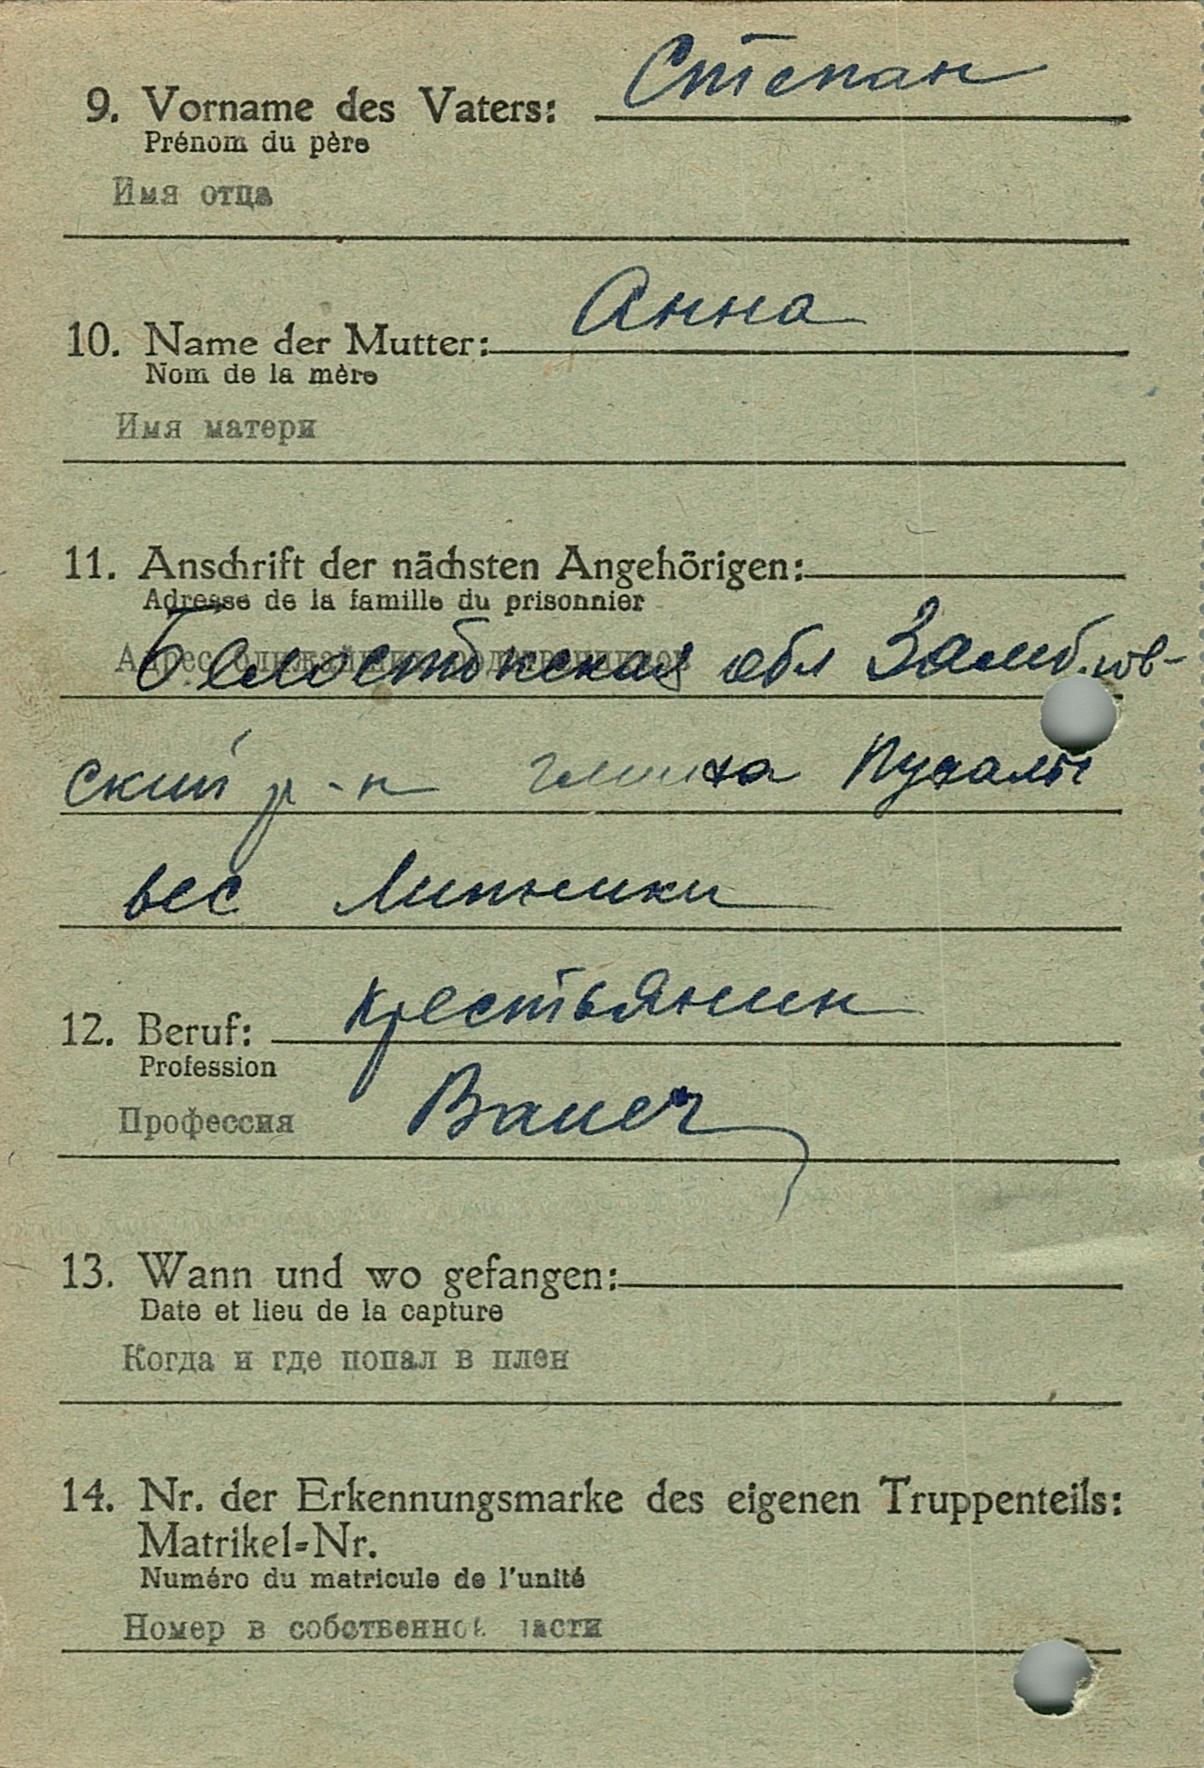 Степан
9. Vorname des Vaters:
Prénom du père
Имя отца
Анна
10. Name der Mutter:
Nom de la mère
Имя матери
11. Anschrift der nächsten Angehörigen:
Adresse de la famille du prisonnier
Адрес ближайших родственников
Белостокская обл Замбров-
ский р-н гмина Пухалы
вес Липники
крестьянин
12. Beruf:
Profession
Профессия Bauer
13. Wann und wo gefangen:
Date et lieu de la capture
Когда и где попал в плен
14. Nr. der Erkennungsmarke des eigenen Truppenteils:
Matrikel-Nr.
Numéro du matricule de l'unité
Номер в собственной части